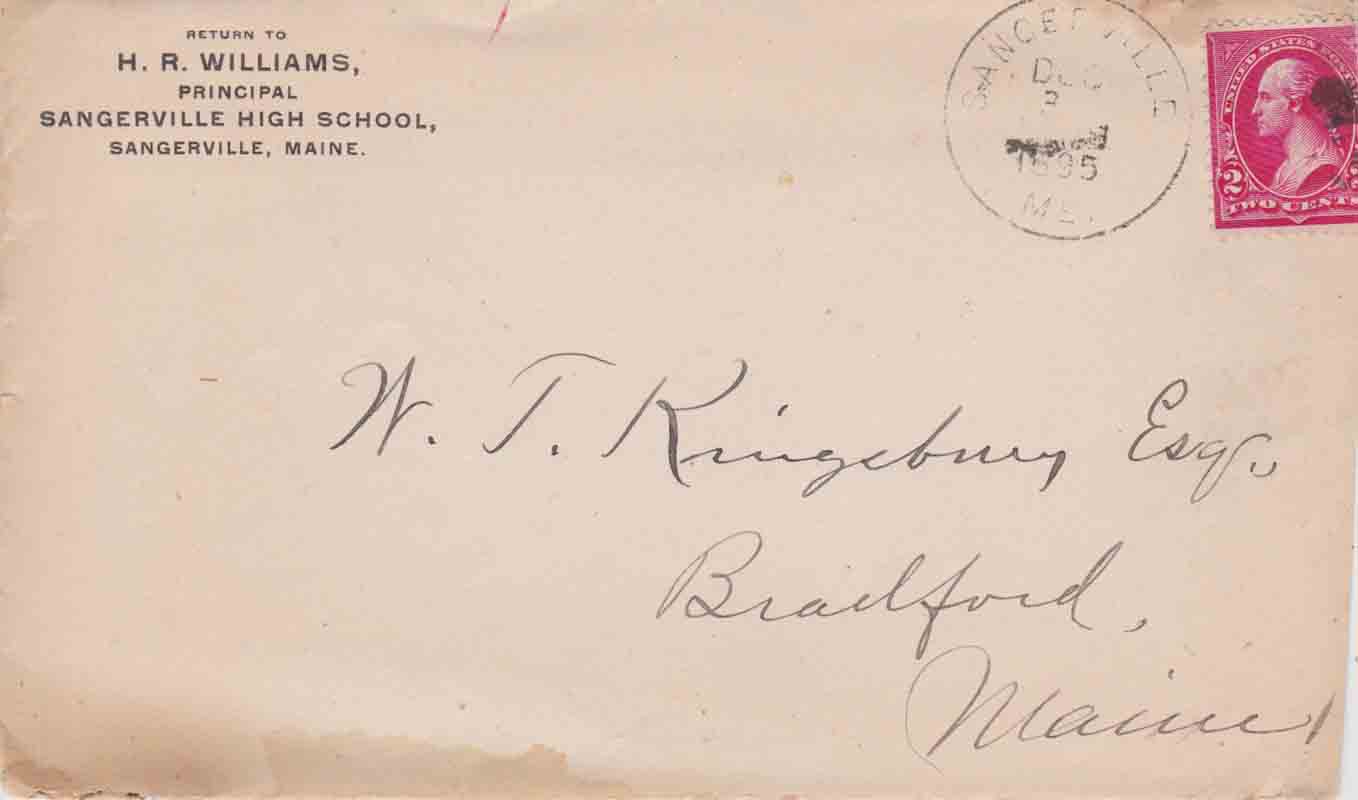 RETURN TO
H. R. WILLIAMS,
PRINCIPAL
SANGERVILLE HIGH SCHOOL,
SANGERVILLE, MAINE.
SANGERVILLE
DEC
1895
ME.
UNITED STATES POST
2
TWO CENT
W. T. Kingsbury Esq.,
Bradford,
Maine